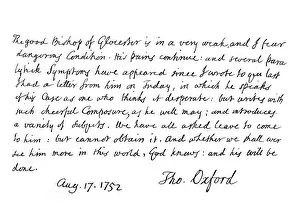 The good Bishop of Glocester is in a very weak, and I fear
dangerous Condition. His pains continue: and several para
lytick Symptoms have appeared since I wrote to you last
I had a letter from him on Friday, in which he speaks
of his Case as one who thinks it desperate: but writes with
such cheerful Composure, as he well may; and introduces
a variety of Subjects. We have all asked leave to come
to him: but cannot obtain it. And whether we shall ever
see him more in this world, God knows: and his will be
done.
Aug. 17. 1752 Tho. Oxford